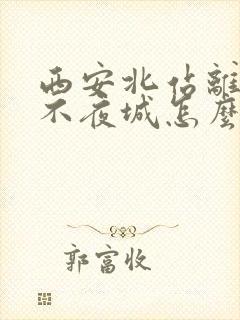 西安北站離
不夜城怎麼
郭富收